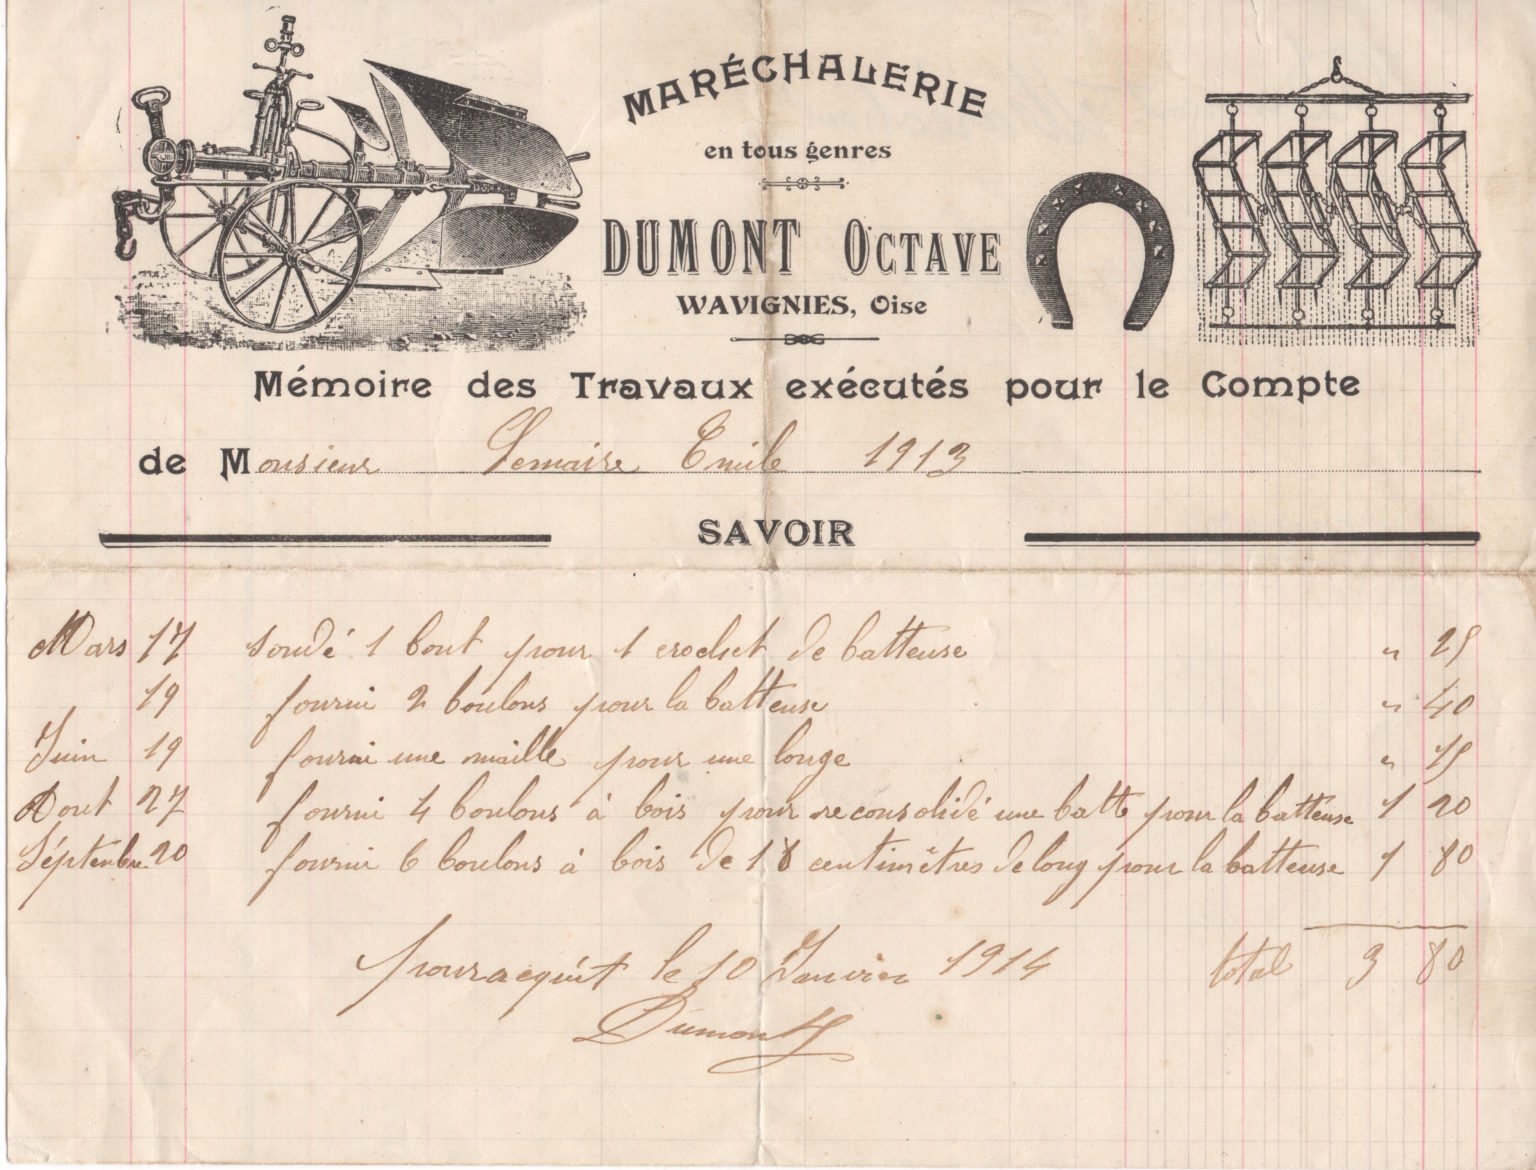 MARÉCHALERIE
en tous genres
DUMONT OCTAVE
WAVIGNIES, Oise
Mémoire des Travaux exécutés pour le Compte
de Monsieur Lemaire Emile 1913
SAVOIR
Mars 17 soudé 1 bout pour 1 crochet de batteuse " 25
19 fourni 2 boulons pour la batteuse " 40
Juin 19 fourni une maille pour une longe " 15
Aout 27 fourni 4 boulons à bois pour reconsolidé une batte pour la batteuse 1 20
Séptembre 20 fourni 6 boulons à bois de 18 centimètres de long pour la batteuse 1 80
total 3 80
pouracquit le 10 Janvier 1914
Dumont